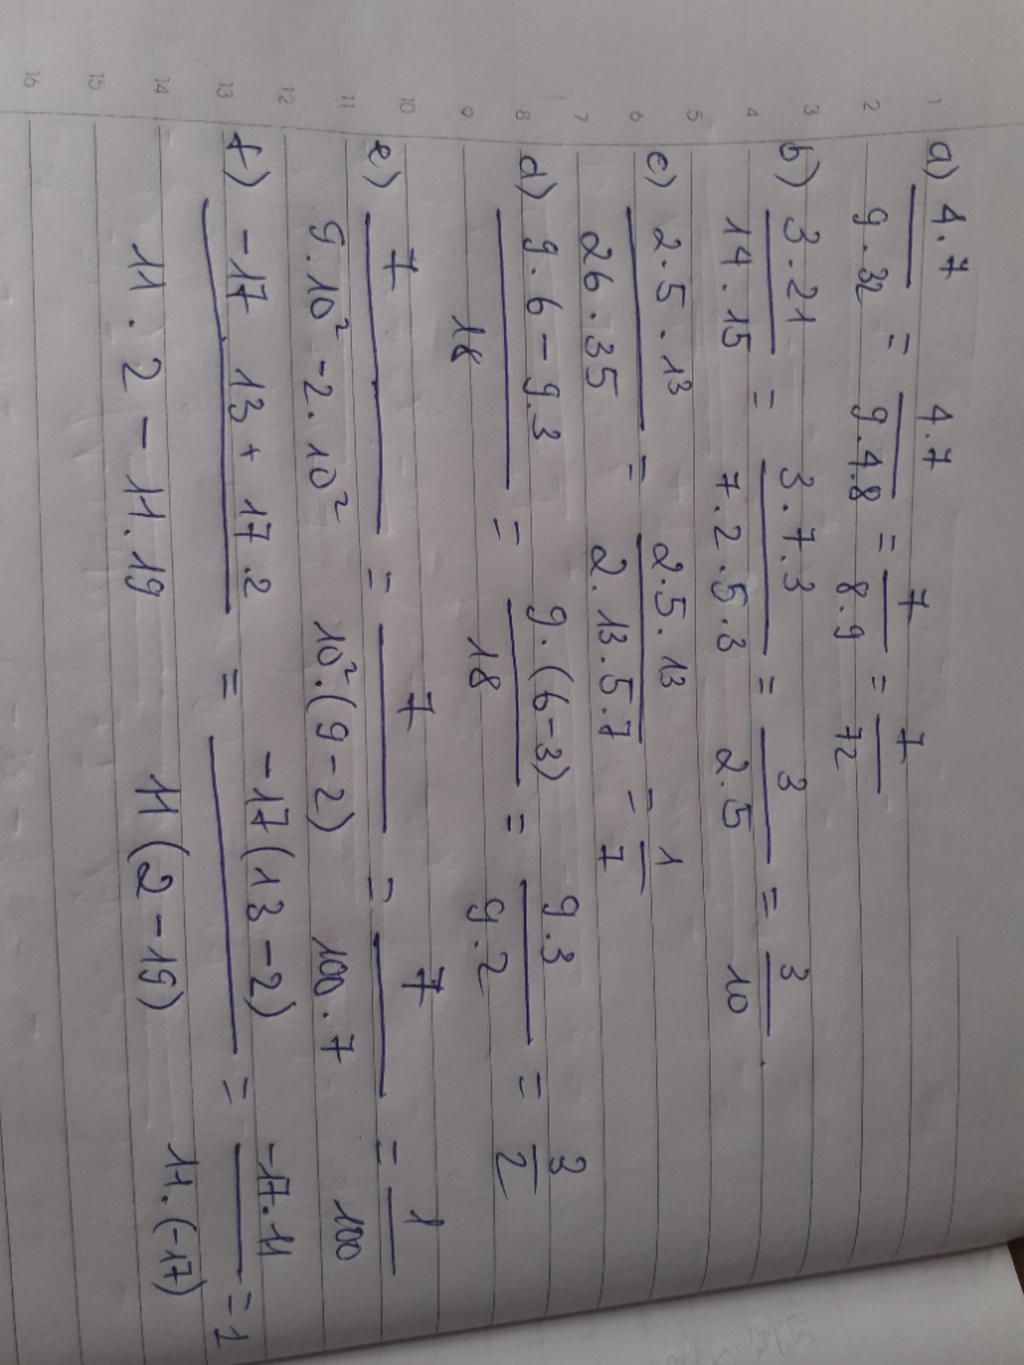 a) 4.7 / 9.32 = 4.7 / 9.4.8 = 7 / 8.9 = 7 / 72
b) 3.21 / 14.15 = 3.7.3 / 7.2.5.3 = 3 / 2.5 = 3 / 10.
c) 2.5.13 / 26.35 = 2.5.13 / 2.13.5.7 = 1 / 7
d) 9.6-9.3 / 18 = 9.(6-3) / 18 = 9.3 / 9.2 = 3 / 2
e) 7 / 9.10²-2.10² = 7 / 10².(9-2) = 7 / 100.7 = 1 / 100
f) -17.13+17.2 / 11.2-11.19 = -17(13-2) / 11(2-19) = -17.11 / 11.(-17) = 1
1
2
3
4
5
6
7
8
9
10
11
12
13
14
15
16